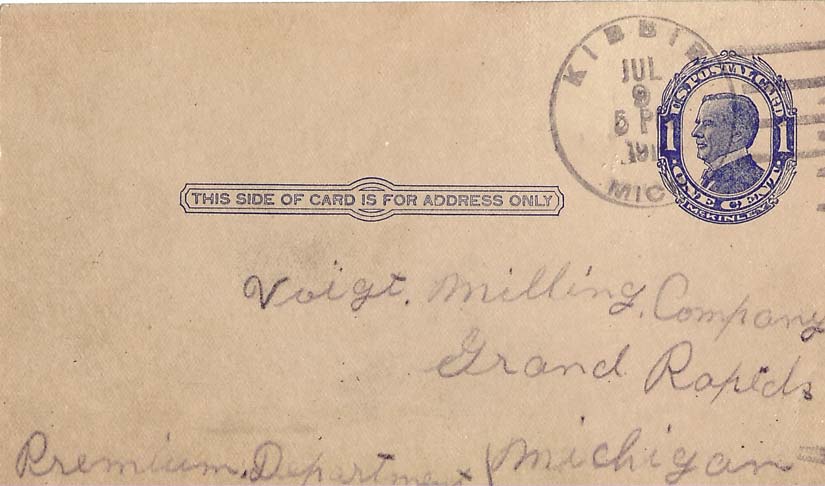 KIBBIE
JUL
9
5 P
191
MICH
U.S. POSTAL CARD
1 1
ONE CENT
McKINLEY
THIS SIDE OF CARD IS FOR ADDRESS ONLY
Voigt. Milling, Company
Grand Rapids
Michigan
Premium. Department